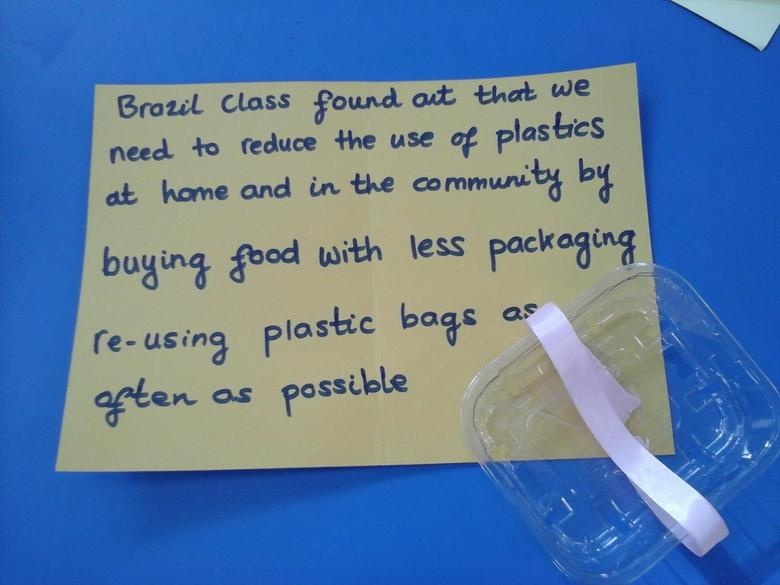 Brazil Class found out that we
need to reduce the use of plastics
at home and in the community by
buying food with less packaging
re-using plastic bags as
often as possible